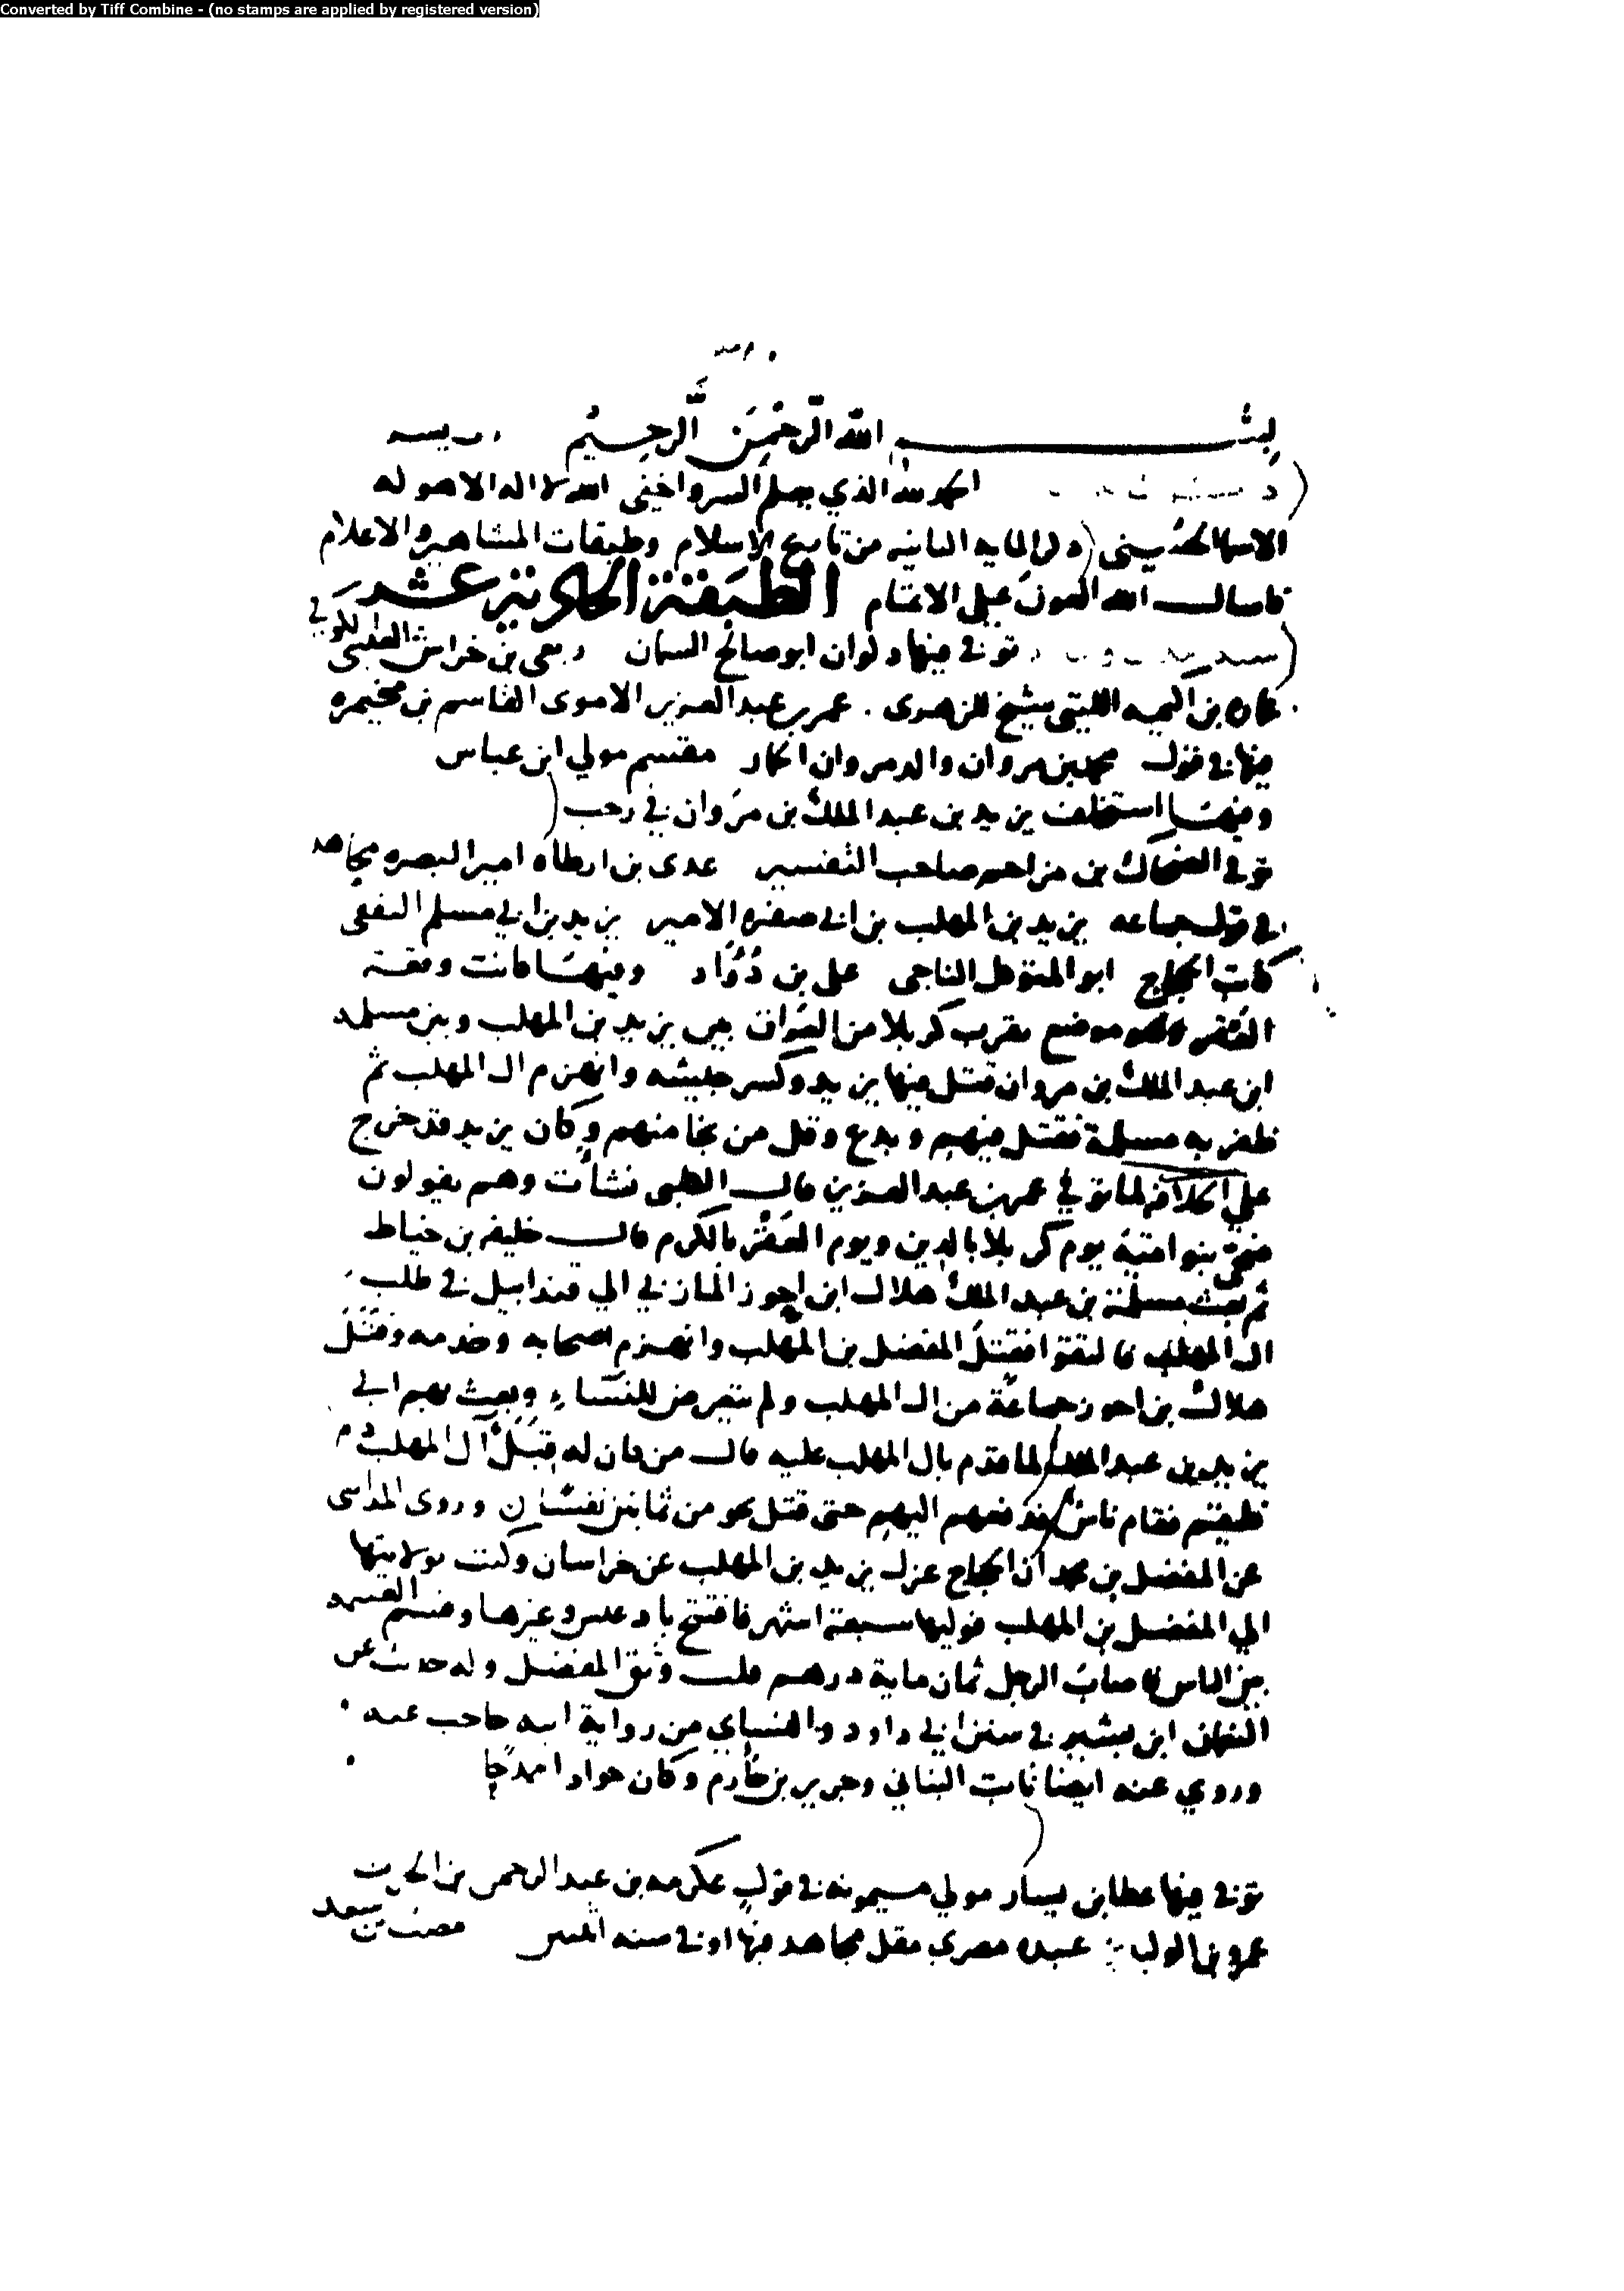 Converted by Tiff Combine - (no stamps are applied by registered version)
بسم الله الرحمن الرحيم
الحمد لله الذي يعلم السر واخفى الله لا اله الا هو له
الاسما الحسنى المايه الثانيه من تاريخ الاسلام وطبقات المشاهير والاعلام
فاسال الله العون على الاتمام الطبقة الحادية عشر
توفي فيها ذكوان ابو صالح السمان ربعي بن خراش
الليثي شيخ للزهري . عمر بن عبد العزيز الاموي القاسم بن مخيمره
فيها في قول محمد بن مروان والد مروان الحمار مقسم مولي ابن عباس
وفيها استخلف يزيد بن عبد الملك بن مروان في رجب
توفي الضحاك بن مزاحم صاحب التفسير عدى بن ارطاه امير البصره مجاهد
في قول جماعه يزيد بن المهلب بن ابي صفره الامير يزيد بن ابي مسلم الثقفى
كاتب الحجاج ابو المتوكل الناجى على بن دؤاد وفيها كانت وقعة
العقر وهو موضع بقرب كربلا من العراق بين يزيد بن المهلب وبين مسلمه
ابن عبد الملك بن مروان قتل فيها يزيد وكسر جيشه وانهزم ال المهلب ثم
ظفر به مسلمة فقتل فيهم وبدع وقل من نجا منهم وكان يزيد قد خرج
على الخلافه لما توفي عمر بن عبد العزيز قال الكلبى نشأت وهم يقولون
ضحى بنو امية يوم كربلا بالدين ويوم العقر بالكرم قال خليفه بن خياط
ثم بعث مسلمة بن عبد الملك هلال ابن احوز المازني الي قندابيل في طلب
ال المهلب فالتقوا فقتل المفضل بن المهلب وانهزم اصحابه وخدمه وقتل
هلال بن احوز جماعة من ال المهلب ولم يتعرض للنساء وبعث بهم الي
يزيد بن عبد الملك لما قدم بال المهلب عليه قال من كان له قبل آل المهلب دم
فليقم فقام ناس فدفعهم اليهم حتى قتل نحو من ثمانين نفسا وروى المدايني
عن المفضل بن محمد أن الحجاج عزل يزيد بن المهلب عن خراسان وكتب بولايتها
الي المفضل بن المهلب فوليها سبعة اشهر فافتتح بادغيس وغيرها وقسم الغنيمه
بين الناس فاصاب الرجل ثمان ماية درهم قلت وثق المفضل وله حديث عن
النعمان ابن بشير في سنن ابي داود والنساي من رواية ابنه حاجب عنه
وروي عنه ايضا ثابت البناني وجرير بن حازم وكان جوادا ممدحا
توفي فيها عطا بن يسار مولي ميمونه في قول عكرمه بن عبد الرحمن بن الحرث
عمرو بن الوليد بن عبده مصري مقل مجاهد فيها او في سنه اثنين مصعب بن سعد